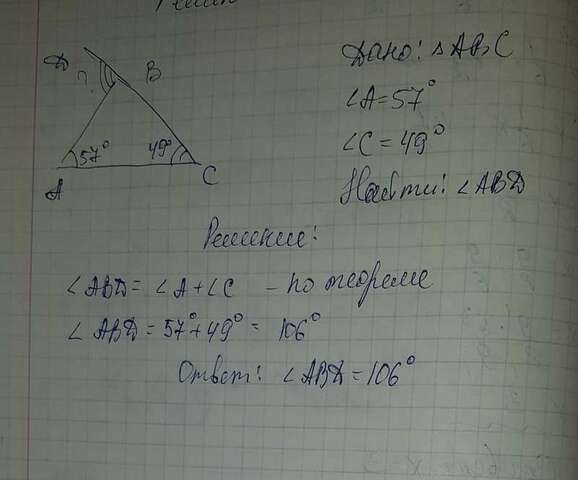 Д
В
?
57°
49°
А
С
Дано: △ABC
∠A=57°
∠C=49°
Найти: ∠ABD
Решение:
∠ABD= ∠A+∠C – по теореме
∠ABD=57°+49°= 106°
Ответ: ∠ABD=106°